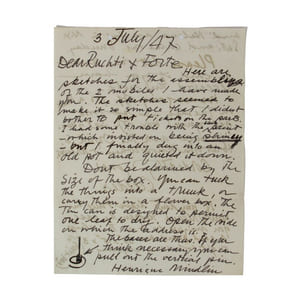 3 July/47
Dear Ruchti & Forte
Here are
sketches for the assemblage
of the 2 mobiles I have made
you. The sketches seemed to
make it so simple that I didnt
bother to put tickets on the parts.
I had some trouble with the
- which insisted on being
- but I finally dug into an
old pot and quieted it down.
Dont be alarmed by the
size of the box. You can tuck
the things into a trunk or
carry them in a flower box. The
tin can is designed to permit
one leaf to drag. Open the side
on which the address is.
The base are thus. If you
think necessary you can
pull out the vertical pin.
Henrique Mindlin